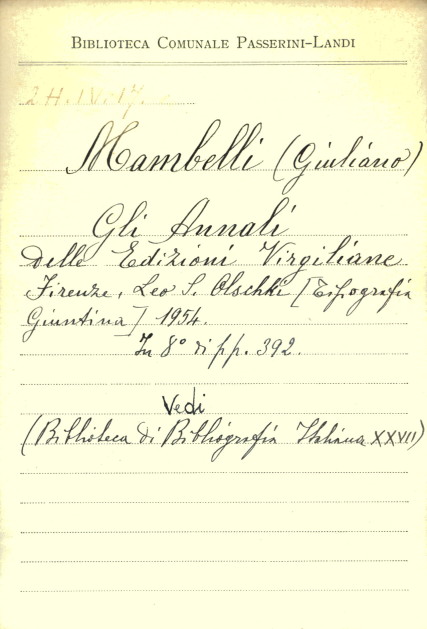 BIBLIOTECA COMUNALE PASSERINI-LANDI
2H.IV.17.
Mambelli (Giuliano)
Gli Annali
delle Edizioni Virgiliane
Firenze, Leo S. Olschki [Tipografia
Giuntina] 1954.
In 8° di pp. 392.
Vedi
(Biblioteca di Bibliografia Italiana XXVII)